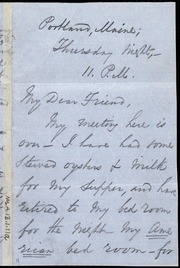 Portland, Maine;
Thursday Night,—
11. P.M.
My Dear Friend,
My meeting here is
over — I have had some
stewed oysters & milk
for my supper, and have
retired to my bed room
for the night. My Ame
rican bed room — for